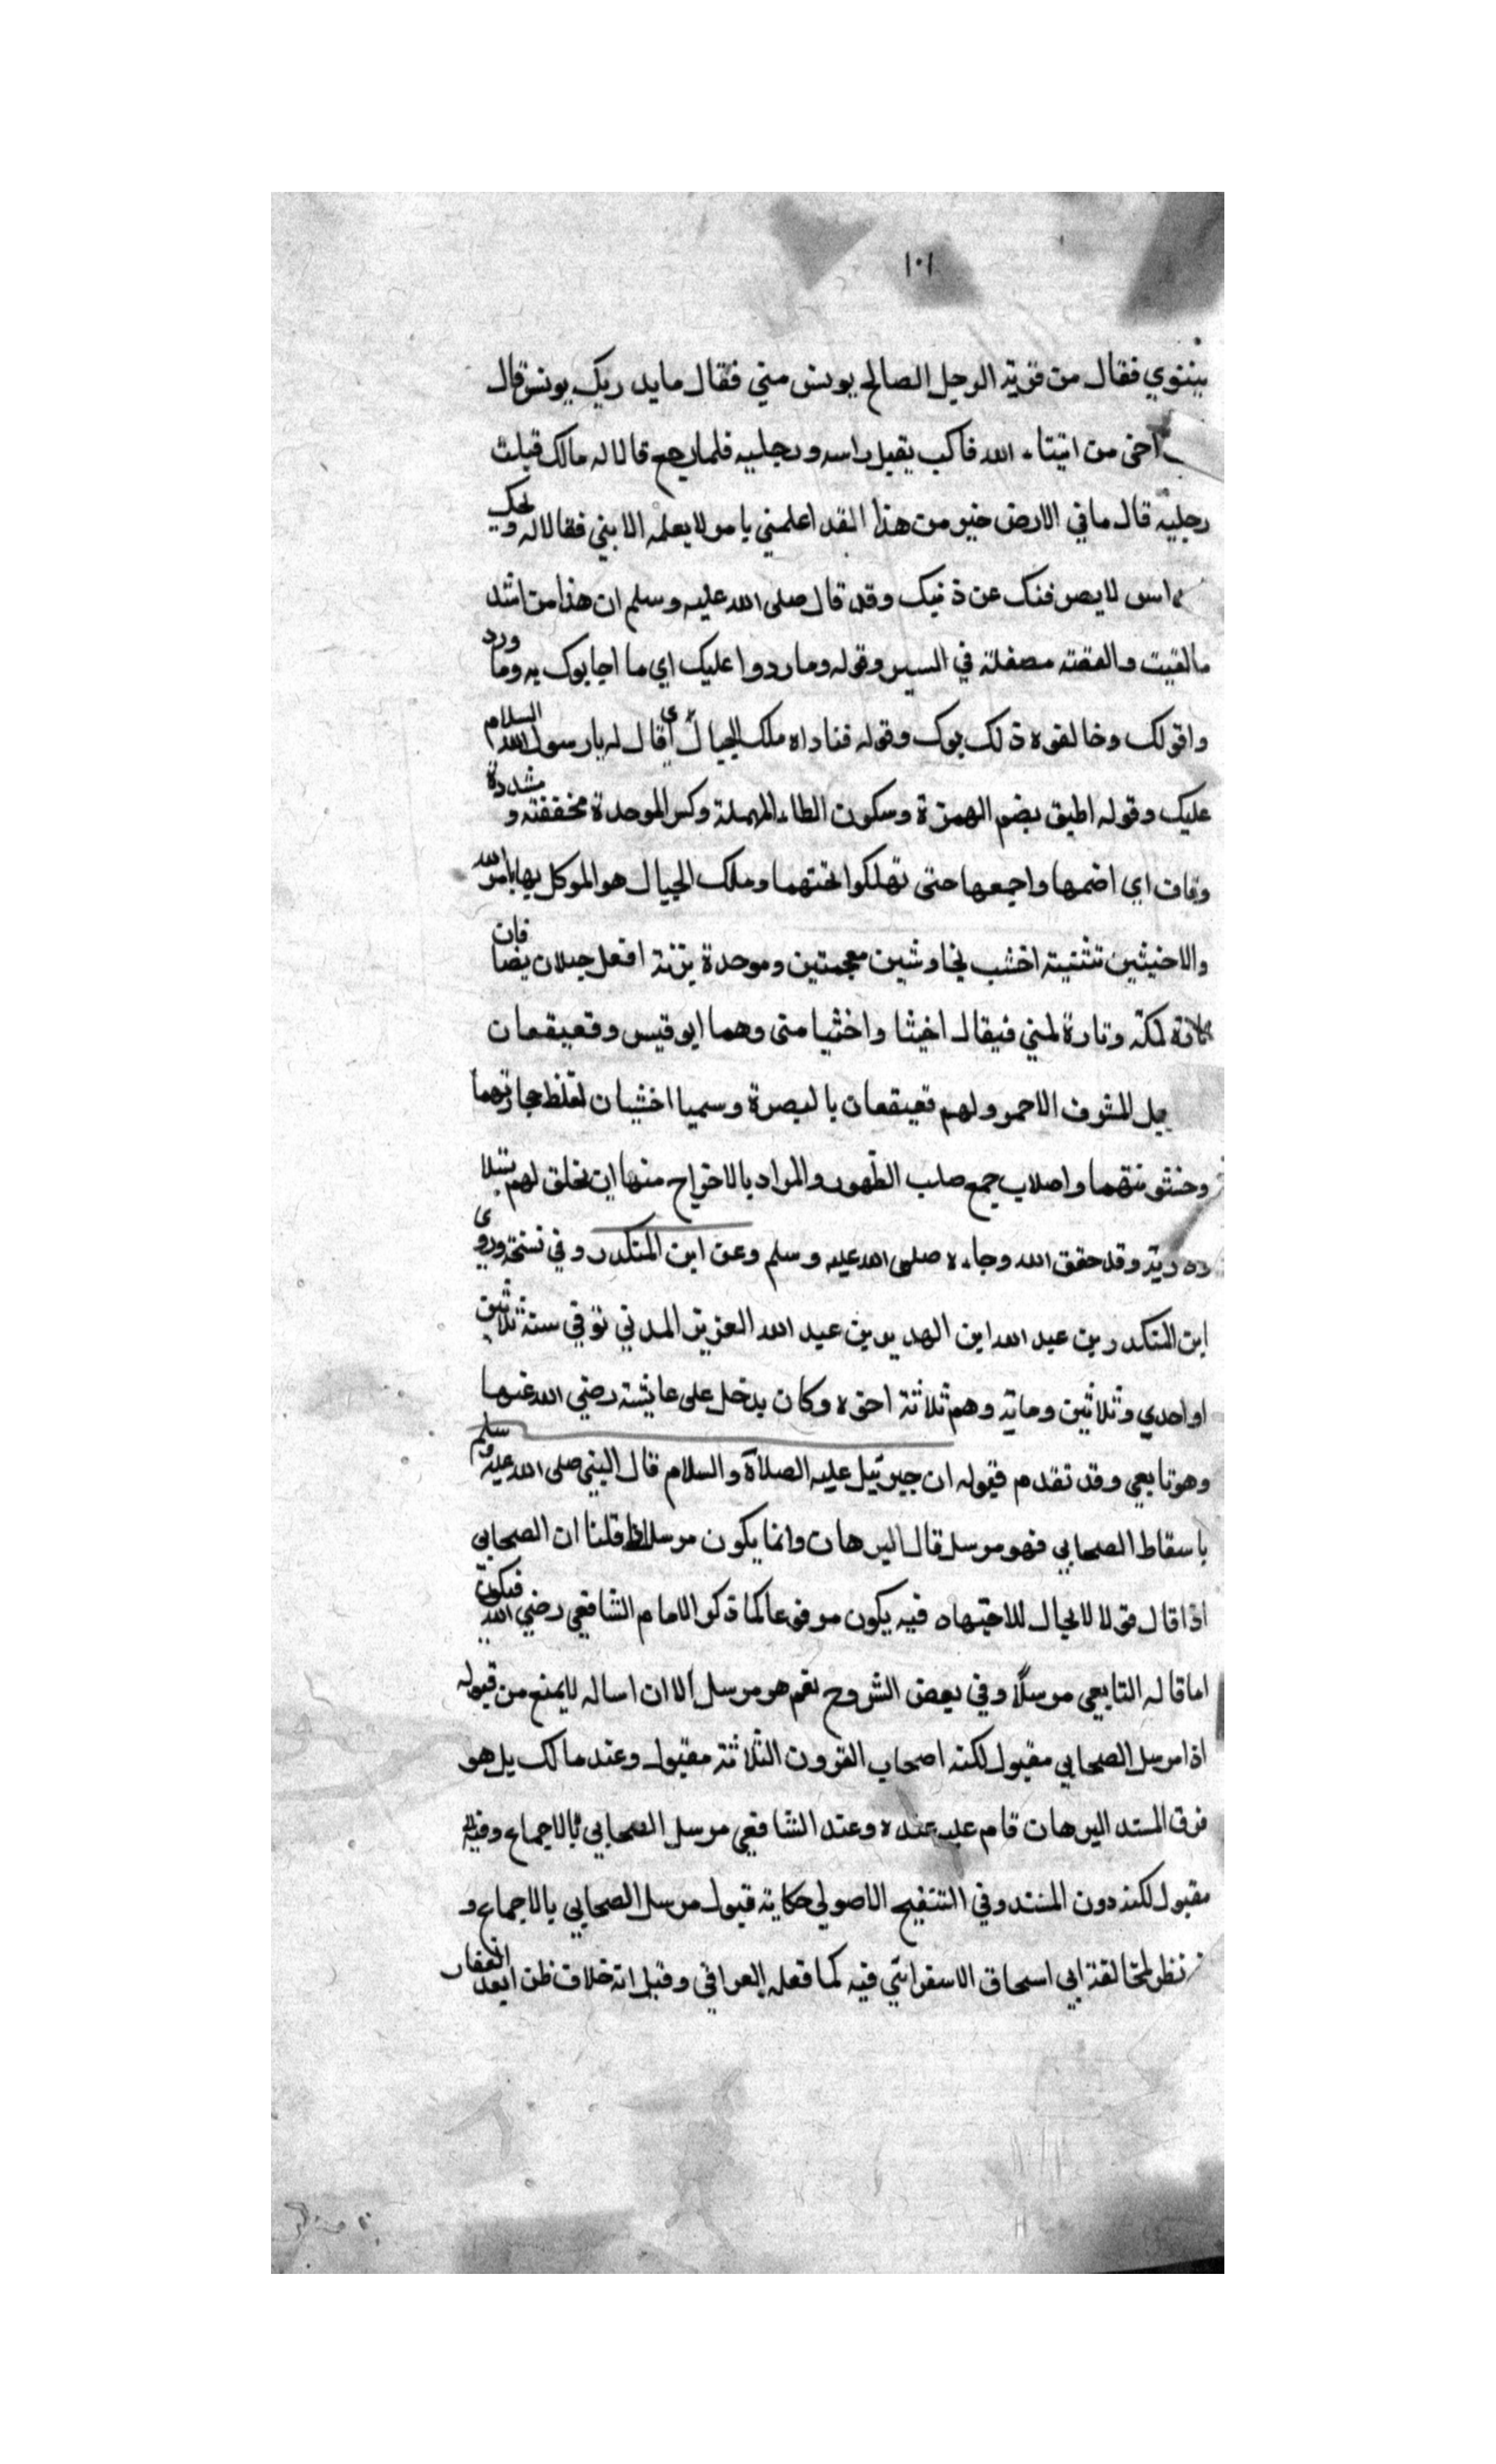 ١٠١
نينوي فقال من قرية الرجل الصالح يونس متي فقال ما يدريك يونس قال
اخي من انبياء الله فاكب يقبل راسه ورجليه فلما رجع قالا له مالك قبلت
رجليه قال ما في الارض خير من هذا لقد اعلمني بامر لا يعلمه الا نبي فقالا له ويحك
لا يصرفنك عن دينك وقد قال صلى الله عليه وسلم ان هذا من اشد
ما لقيت والقصة مفصلة في السير وقوله وما ردوا عليك اي ما اجابوك به وما ورد
واقولك وخالفوه ذلك بوك وقوله فناداه ملك الجبال اي قال له يا رسول الله السلام
عليك وقوله اطبق بضم الهمزة وسكون الطاء المهملة وكسر الموحدة مخففة و مشددة
وقاف اي اضمها واجمعها حتى تهلكوا تحتهما وملك الجبال هو الموكل بها بامر الله
والاخشبين تثنية اخشب بخا وشين معجمتين وموحدة بزنة افعل جبلان يضافان
تارة لمكة وتارة لمني فيقال اخشبا واخشبا مني وهما ابو قبيس وقعيقعان
جبل المشرف الاحمر ولهم قعيقعان بالبصرة وسميا اخشبان لغلظ حجارتهما
وخشونتهما واصلاب جمع صلب الظهور والمراد بالاخراج منها ان يخلق لهم نسلا
وذرية وقد حقق الله رجاءه صلى الله عليه وسلم وعن ابن المنكدر وفي نسخة وروي
ابن المنكدر بن عبد الله ابن الهدير بن عبد الله العزيز المدني توفي سنة ثلاثين
او احدي وثلاثين وماية وهم ثلاثة اخوه وكان يدخل على عايشة رضي الله عنها
وهو تابعي وقد تقدم فقوله ان جبرئيل عليه الصلاة والسلام قال للنبي صلى الله عليه وسلم
باسقاط الصحابي فهو مرسل قال البرهان وانما يكون مرسلا اذا قلنا ان الصحابي
اذا قال قولا لا مجال للاجتهاد فيه يكون مرفوعا كما ذكر الامام الشافعي رضي الله فيكون
اما قاله التابعي مرسلًا وفي بعض الشروح نعم هو مرسل الا ان ارساله لا يمنع من قبوله
اذا مرسل الصحابي مقبول لكنه اصحاب القرون الثلاثة مقبول وعند مالك بل هو
فرق المسند البرهان قام عليه عنده وعند الشافعي مرسل الصحابي بالاجماع وفيه
مقبول لكنه دون المسند وفي التنقيح الاصولي حكاية قبول مرسل الصحابي بالاجماع و
نظر لمخالفة ابي اسحاق الاسفرائني فيه كما فعله العراقي وقيل انه خلاف ظن ابعد